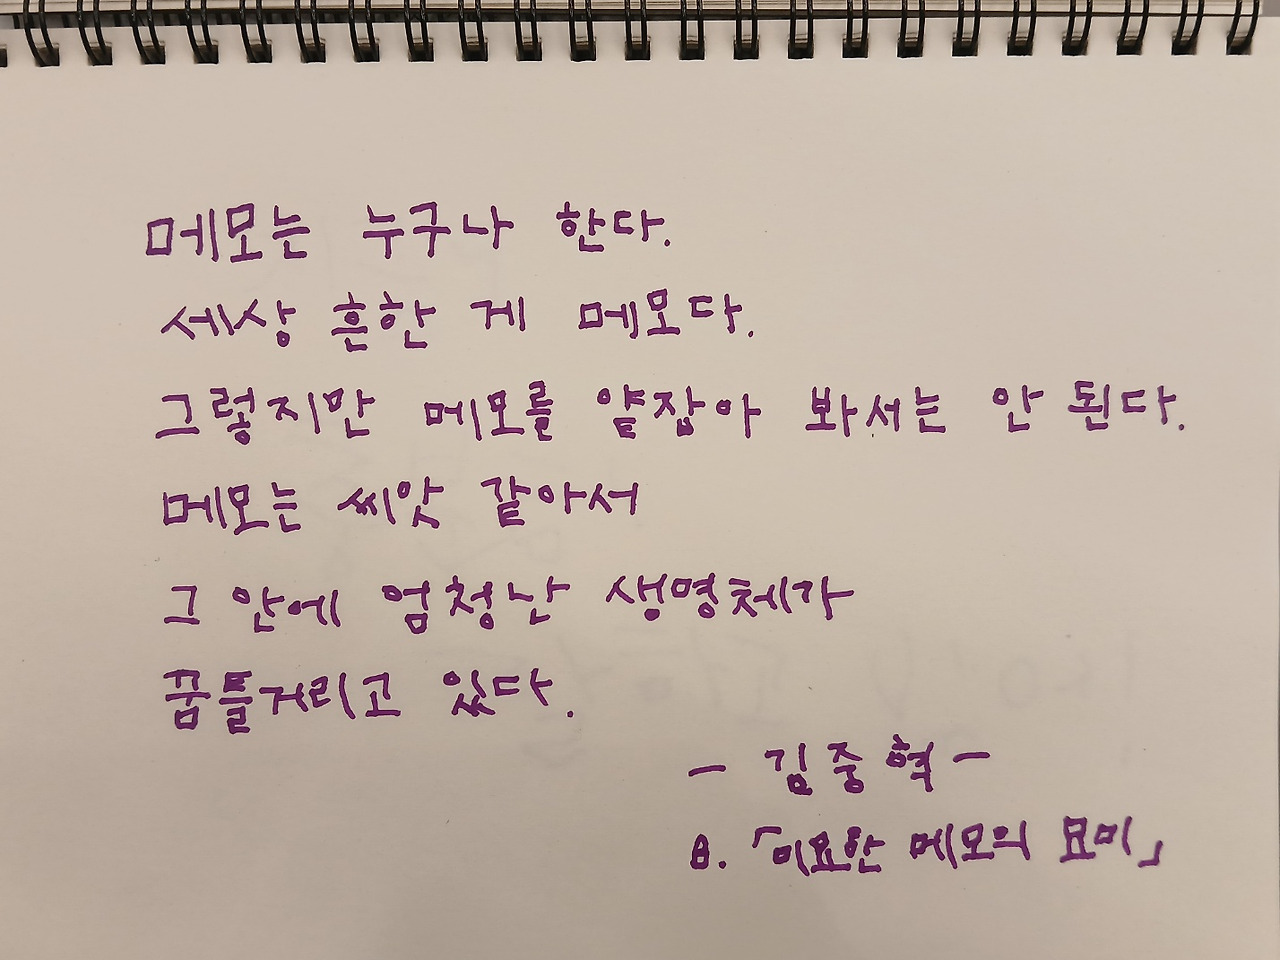 메모는 누구나 한다.
세상 흔한 게 메모다.
그렇지만 메모를 얕잡아 봐서는 안 된다.
메모는 씨앗 같아서
그 안에 엄청난 생명체가
꿈틀거리고 있다.
- 김중혁 -
8. 「미묘한 메모의 묘미」